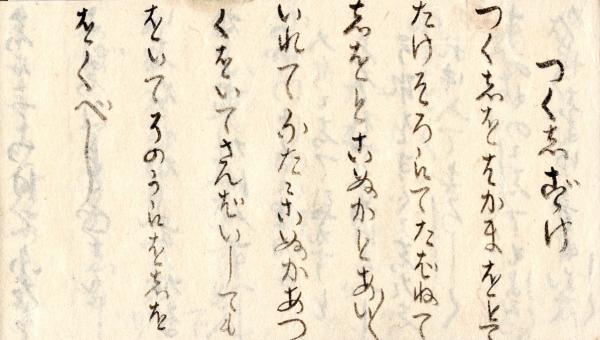 つくしづけ
つくしをはかまをとて
たけそろへてたばねて
しをとこぬかとあい〱
いれて こぬかあつ
くをいてさんだいしても
をいてそのうへをしを
をくべし